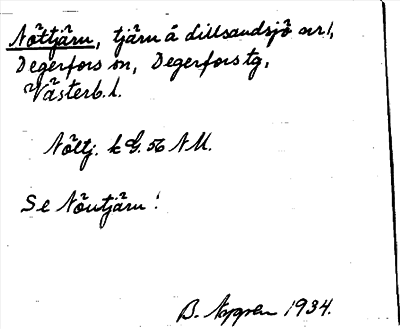 Nöttjärn, tjärn å Lillsandsjö skr!,
Degerfors sn, Degerfors tg,
Västerb. l.
Nöltj. k G. 56 NM.
Se Nöutjärn!
B. Nygren 1934.